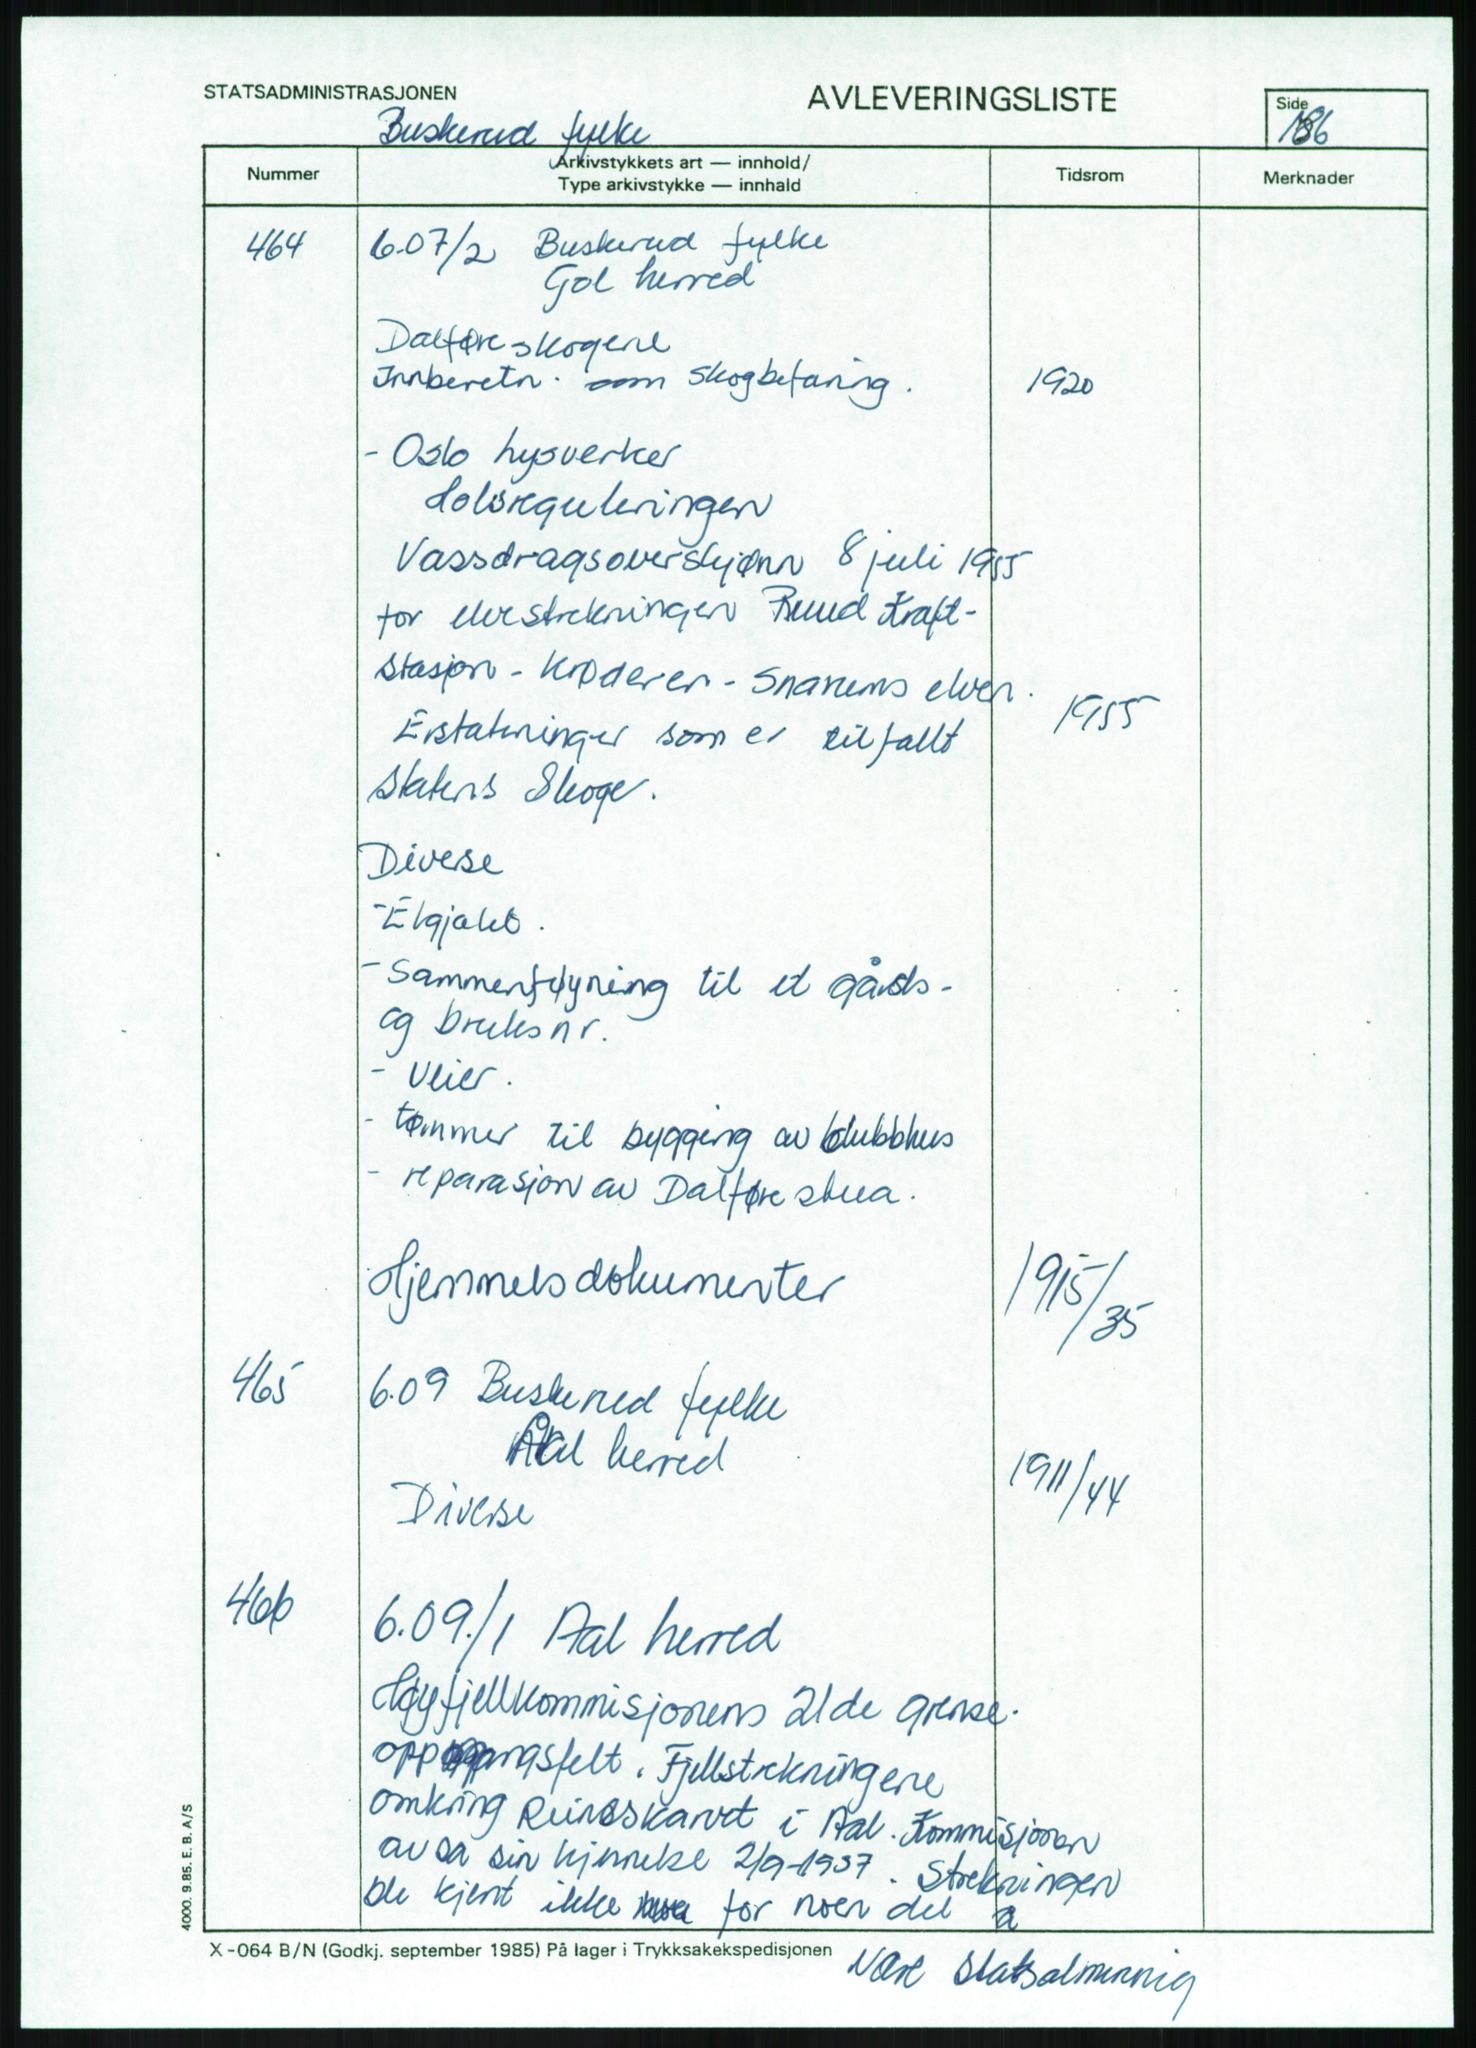 STATSADMINISTRASJONEN
AVLEVERINGSLISTE
Side
186
Buskerud fylke
Nummer
Arkivstykkets art — innhold/
Type arkivstykke — innhald
Tidsrom
Merknader
464 6.07/2 Buskerud fylke
Gol herred
Dalføreskogene
Innberetn. om skogbefaring. 1920
- Oslo lysverker
Holsreguleringen
Vassdragsoverskjønn 8 juli 1955
for elvestrekningen Ruud Kraft-
stasjon - Krøderen - Snarums elven.
1955
Erstatninger som er tilfallt
Statens Skoger.
Diverse
- Elgjakt.
- Sammenføyning til et gårds-
og bruksnr.
- veier.
- tømmer til bygging av klubbhus
- reparasjon av Dalførestua.
Hjemmelsdokumenter 1915/35
465 6.09 Buskerud fylke
Ål herred
1911/44
Diverse
466 6.09./1 Aal herred
Høyfjellkommisjonens 21de grense.
oppgangsfelt. Fjellstrekningene
omkring Reineskarvet i Aal. Kommisjonen
avsa sin kjennelse 2/9-1937. Strekningen
ble kjent ikke for noen del å
være statsalmenning
4000. 9.85. E. B. A/S
X-064 B/N (Godkj. september 1985) På lager i Trykksakekspedisjonen